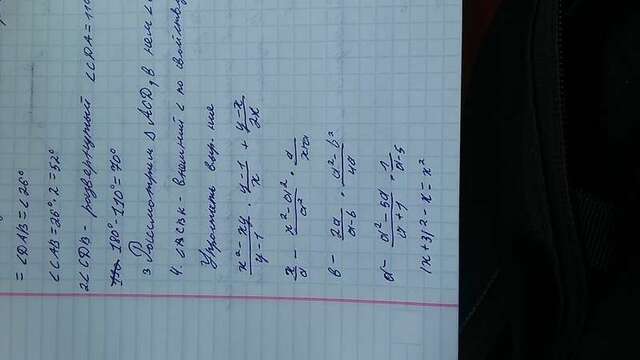 = ∠DAB = ∠26°
∠CAB = 26° · 2 = 52°
2∠CDB - развернутый ∠CDA = 110
180° - 110° = 70°
3 Рассмотрим △ ACD, в нем ∠
4. - внешний ∠ по свойству
Упростить выр-ние
(x² - xy)/(y - 1) · (y - 1)/x + (y - x)/2x
x/a - (x² - a²)/a² · a/(x+a)
в - 2a/(a - b) · (a² - b²)/4a
a - (a² - 5a)/(a + 1) · 1/(a - 5)
(x + 3)² - x = x²